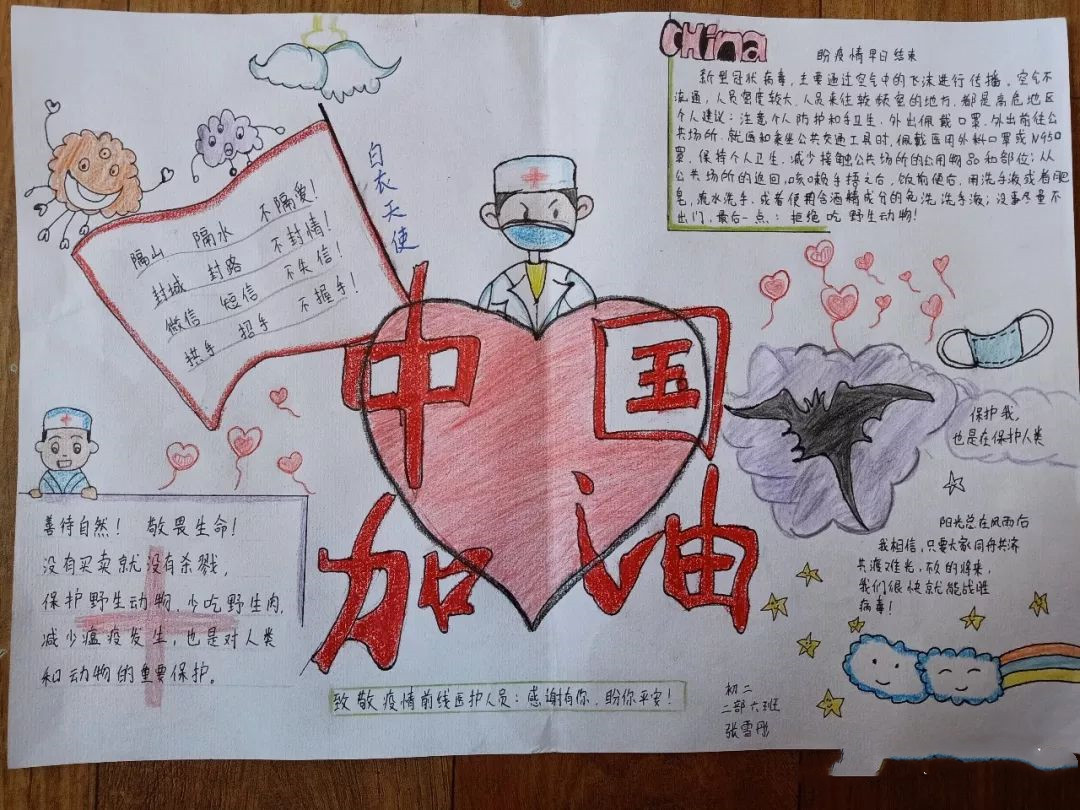 China
盼疫情早日结束
新型冠状病毒，主要通过空气中的飞沫进行传播，空气不
流通，人员密度较大，人员来往较频密的地方，都是高危地区
个人建议：注意个人防护和手卫生，外出佩戴口罩，外出前往公
共场所，就医和乘坐公共交通工具时，佩戴医用外科口罩或N95口
罩，保持个人卫生，减少接触公共场所的公用物品和部位；从
公共场所的返回，咳嗽手捂之后，饭前便后，用洗手液或者肥
皂，流水洗手，或者使用含酒精成分的免洗洗手液；没事尽量不
出门，最后一点：拒绝吃野生动物！
白衣天使
隔山 隔水 不隔爱！
封城 封路 不封情！
微信 短信 不失信！
拱手 招手 不握手！
中国
加油
保护我，
也是在保护人类
善待自然！ 敬畏生命！
没有买卖就没有杀戮，
保护野生动物，少吃野生肉，
减少瘟疫发生，也是对人类
和动物的重要保护。
阳光总在风雨后
我相信，只要大家同舟共济
共渡难光，不的将来，
我们很快就能战胜
病毒！
致敬疫情前线医护人员：感谢有你，盼你平安！
初二
二部六班
张雪彤